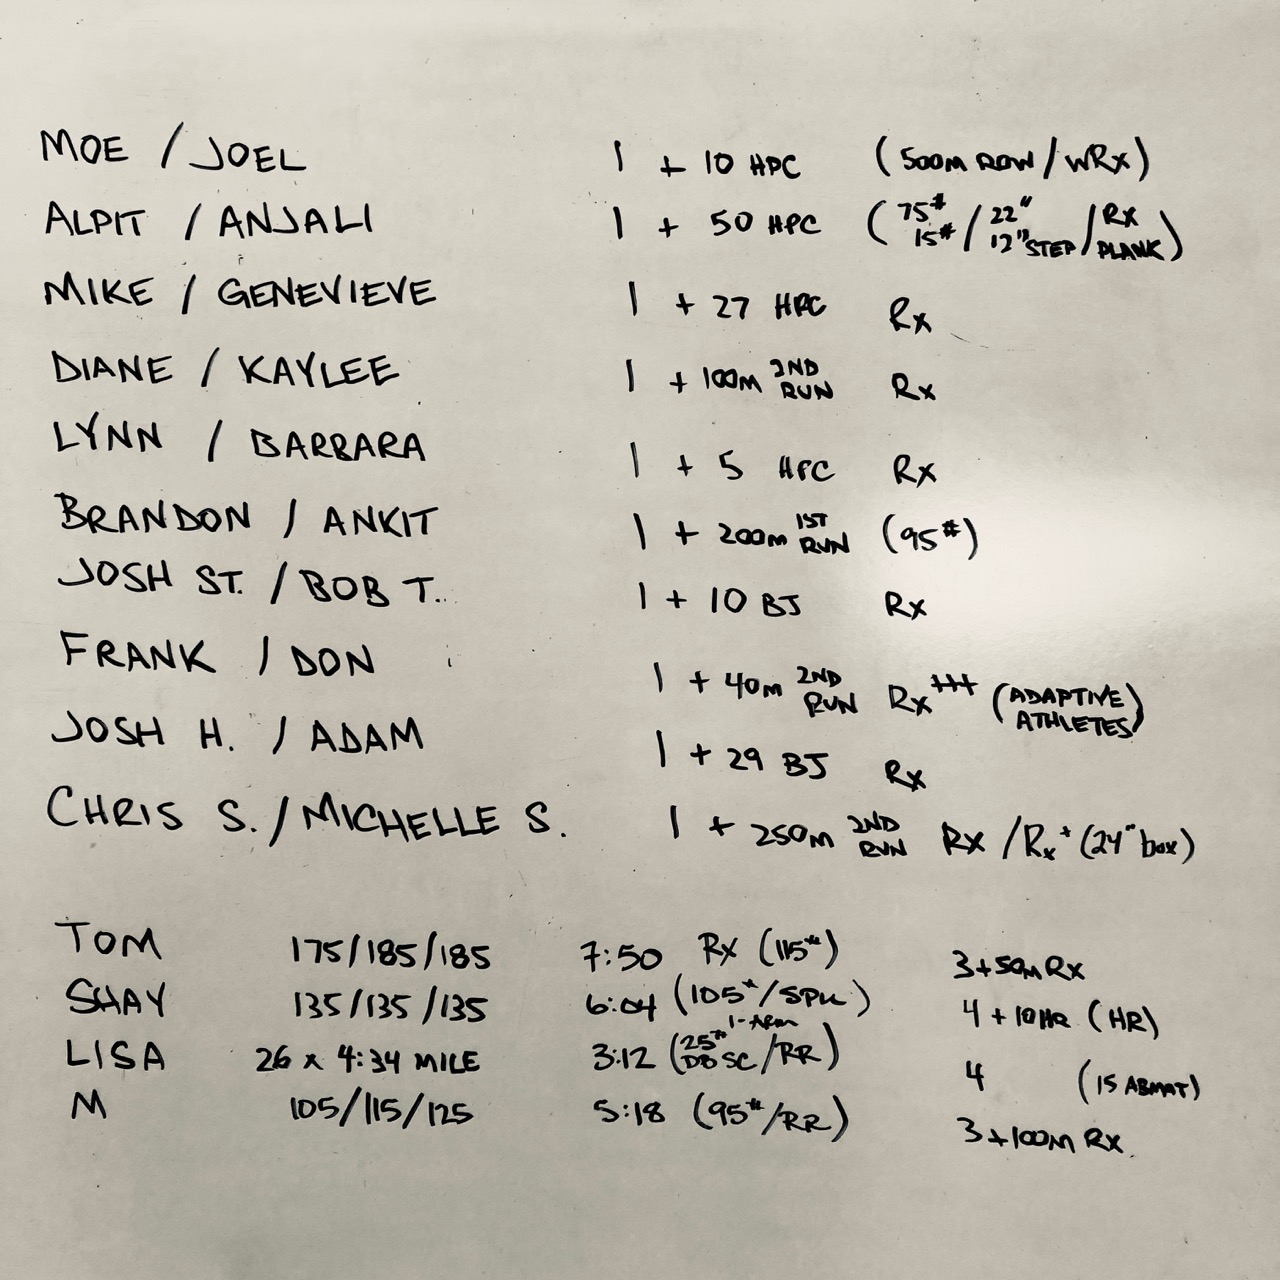 MOE / JOEL 1 + 10 HPC (500M ROW / WRX)
ALPIT / ANJALI 1 + 50 HPC (75# 15# / 22" 12" STEP / RX PLANK)
MIKE / GENEVIEVE 1 + 27 HPC Rx
DIANE / KAYLEE 1 + 100M 2ND RUN Rx
LYNN / BARBARA 1 + 5 HPC Rx
BRANDON / ANKIT 1 + 200M 1ST RUN (95#)
JOSH ST. / BOB T. 1 + 10 BJ Rx
FRANK / DON 1 + 40M 2ND RUN Rx+++ (ADAPTIVE ATHLETES)
JOSH H. / ADAM 1 + 29 BJ Rx
CHRIS S. / MICHELLE S. 1 + 250M 2ND RUN RX / Rx+ (24" box)
TOM 175/185/185 7:50 RX (115#) 3+50M RX
SHAY 135/135/135 6:04 (105#/SPU) 4 + 10HR (HR)
LISA 26 x 4:34 MILE 3:12 (25# 1-ARM DB SC/RR) 4 (15 ABMAT)
M 105/115/125 5:18 (95#/RR) 3+100M RX